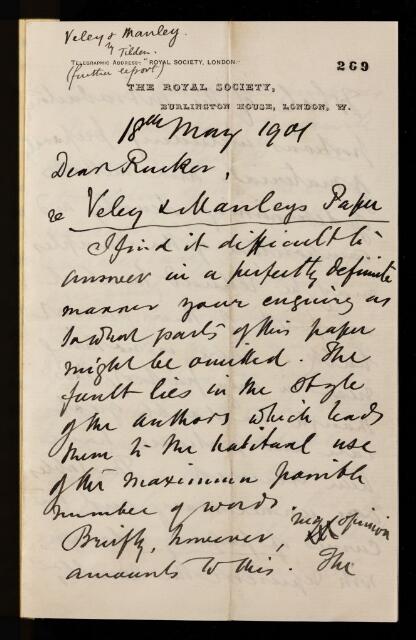 Veley & Manley.
by Tilden.
(further report)
TELEGRAPHIC ADDRESS:- "ROYAL SOCIETY, LONDON."
269
THE ROYAL SOCIETY,
BURLINGTON HOUSE, LONDON, W.
18th May 1901
Dear Rucker,
re Veley & Manleys Paper
I find it difficult to
answer in a perfectly definite
manner your enquiry as
to what parts of this paper
might be omitted. The
fault lies in the style
of the authors which leads
them to the habitual use
of the maximum possible
number of words.
Briefly, however, my opinion
amounts to this. The